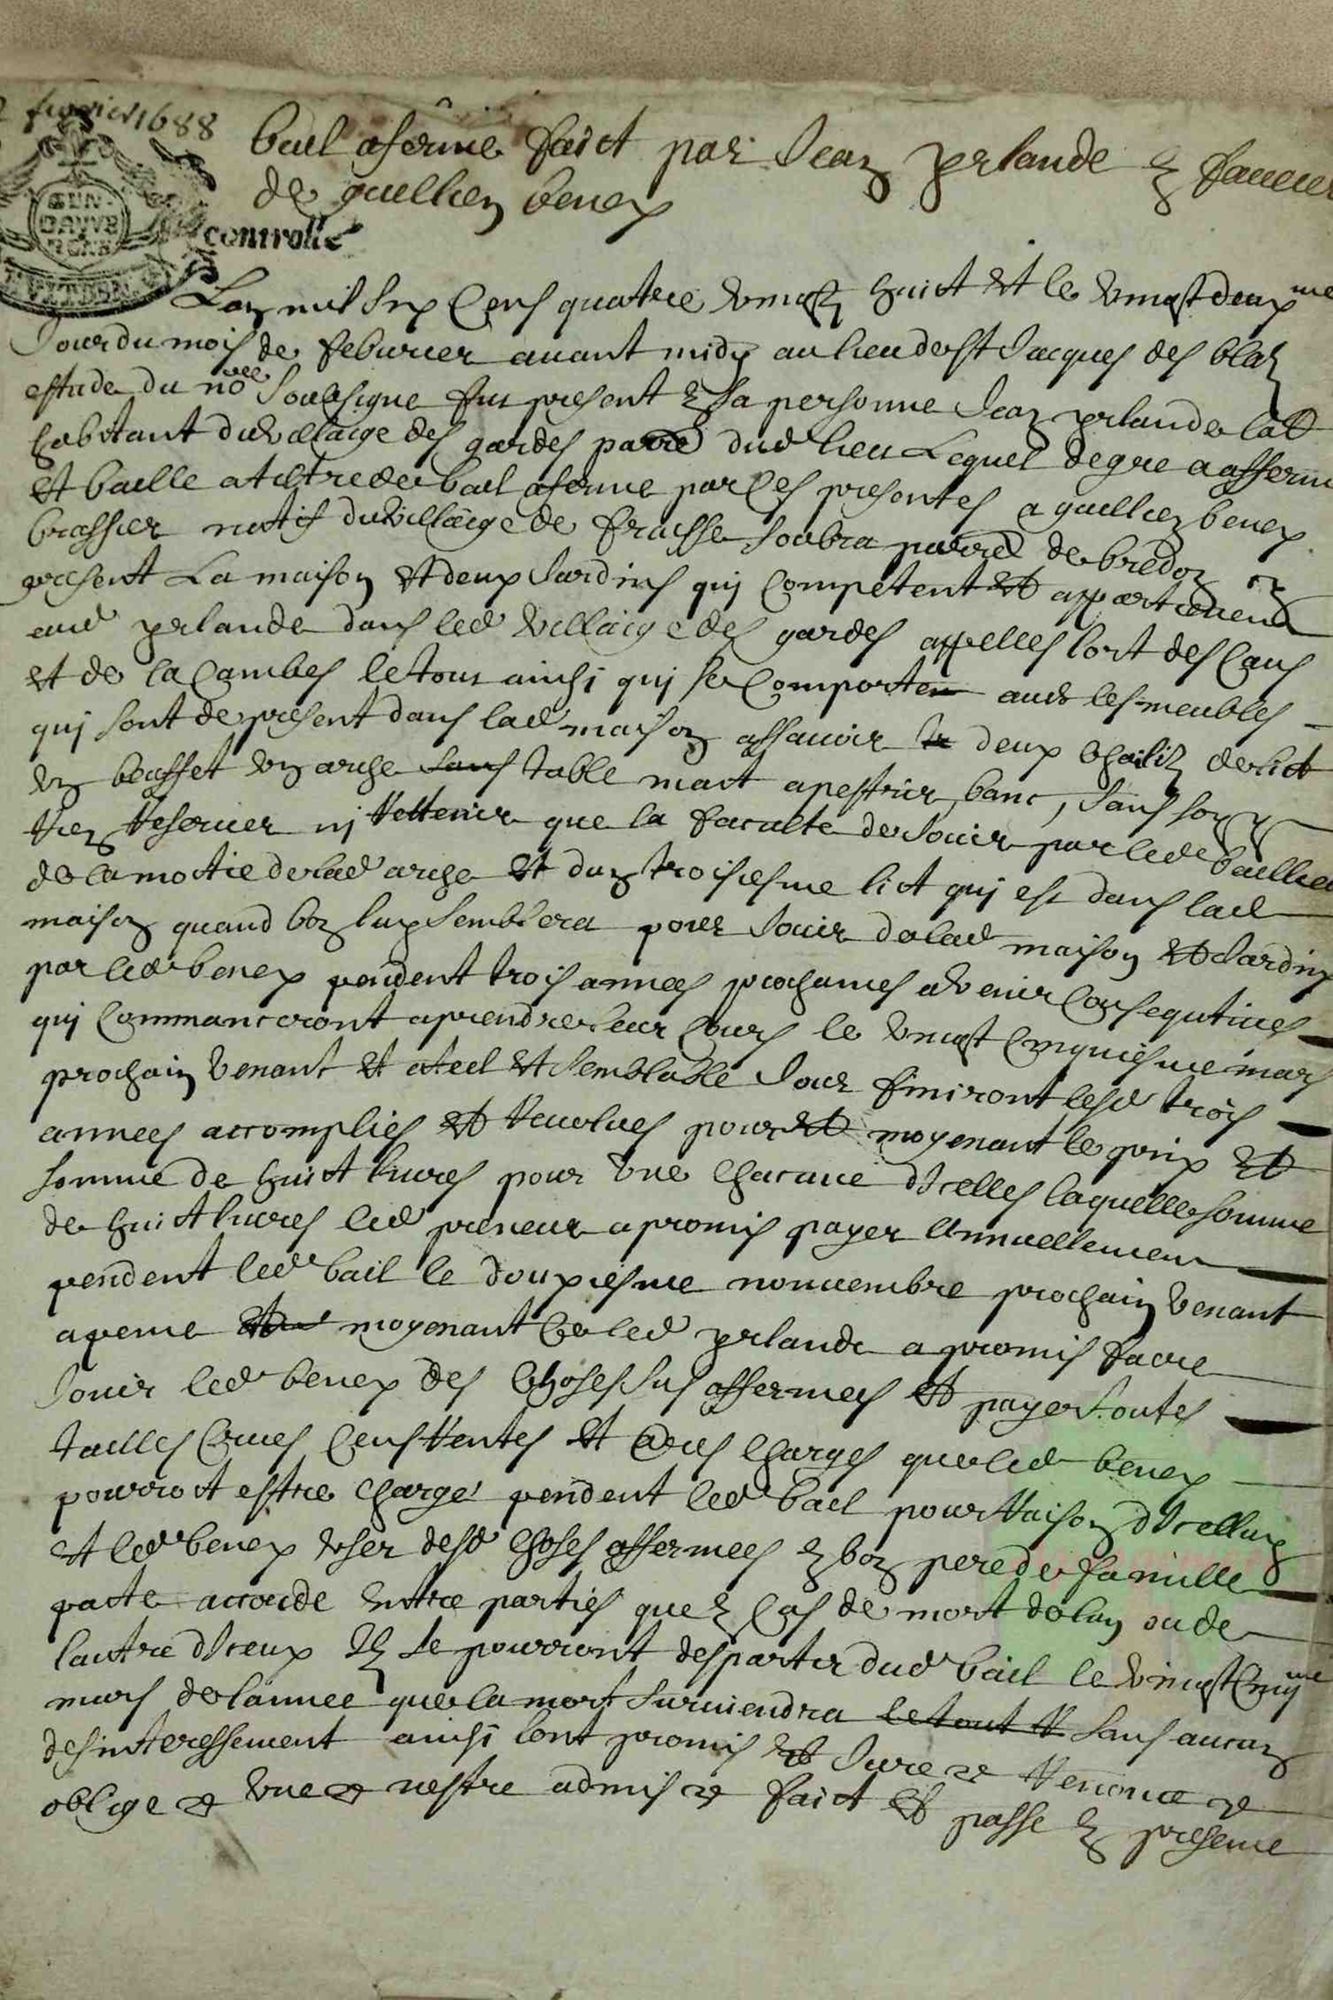 fevrier 1688
bail aferme faict par Jean yrlande en faveur
de guillien benex
GEN. DAUVERGNE
controllé
Lan mil six cens quatre vingtz huict et le vingt deuxme
Jour du mois de feburier avant midy au lieu de st Jacques des blatz
estude du nore soubsigne fut present en sa personne Jean yrlande lab
habitant du vilaige des gardes parre dud lieu Lequel de gre a afferme
et baille a tiltre de bail aferme par ces presentes a guillien benex
brassier natif du village de fraisse soubra parre de bredon
present La maison et deux Jardins qui competent et appartienent
aud yrlande dans led village des gardes appelles lort des
et de la Combes le tout ainsi qui se comporte avec les meubles
qui sont de present dans lad maison assavoir deux chailitz de lict
un buffet un arche table mact a pestrir, banc, sans son
rien reserver ny rettenir que la faculte de Jouir par led bailleur
de la moitie de lad arche et dun troisiesme lict qui est dans lad
maison quand bon luy semblera pour Jouir de lad maison et Jardins
par led benex pendent trois annees prochaines advenir consequtives
qui commanceront a prendre leur cours le vingt cinquiesme mars
prochain venant et a tel et semblable Jour finiront lesd trois
annees accomplies et revolues pour et moyenant le prix et
somme de huict livres pour une chacune dicelles laquelle somme
de huict livres led preneur a promis payer annuellement
pendent led bail le douxiesme novembre prochain venant
a peine moyenant ce led yrlande a promis faire
Jouir led benex des choses sus affermees et payer toutes
tailles cens rentes et charges que led benex
pourroit estre charge pendent led bail pour raison dicelluy
et led benex user desd choses affermees en bon pere de famille
pacte accorde entre parties que en cas de mort de lun ou de
lautre diceux ilz se pourront despartir dud bail le vingt cinqme
mars de lannee que la mort surviendra le tout sans aucun
desinteressement ainsi lont promis et Jure et renonce et
oblige et une et nestre admis et faict et passe en presence